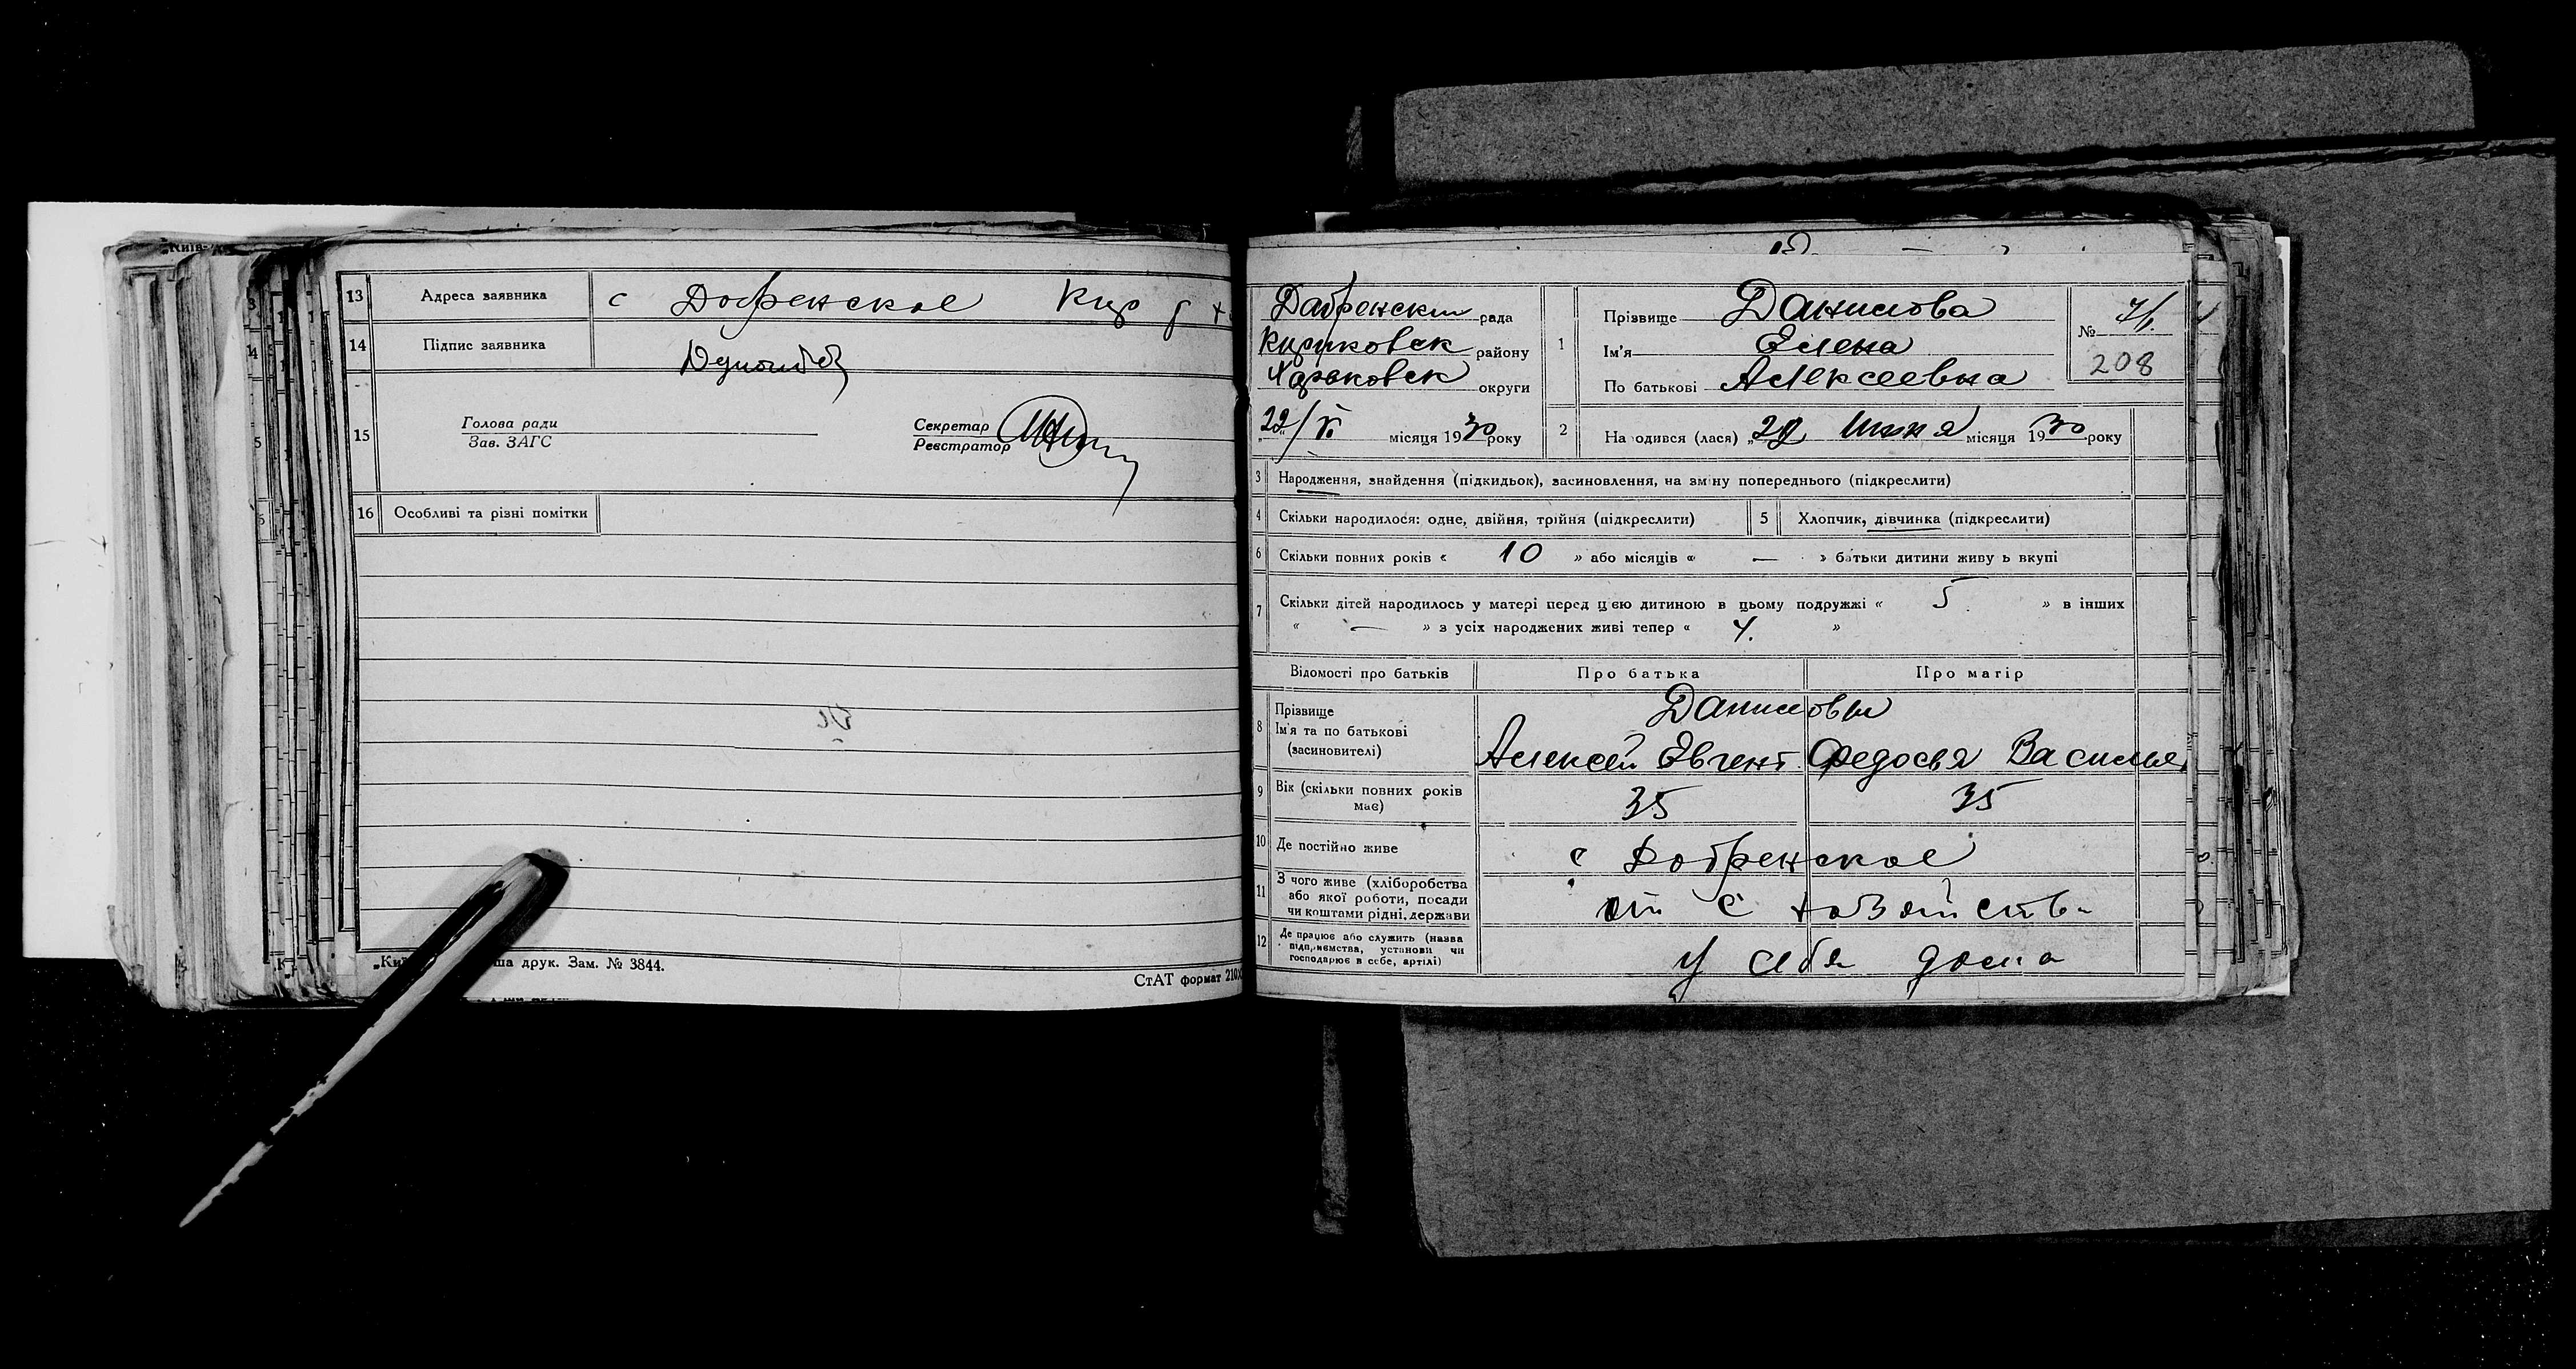 Київ-
13 Адреса заявника с Добренское Кир
14 Підпис заявника
15 Голова ради
Зав. ЗАГС
Секретар
Реєстратор
16 Особливі та різні помітки
„Ки ша друк. Зам. № 3844.
СтАТ формат 210
Добренск рада
району
Харьковск округи
22/VI місяця 1930 року
1 Прізвище Данилова
Ім'я Елена
По батькові Алексеевна
№
208
2 На одився (лася) „ Июня місяця 1930 року
3 Народження, знайдення (підкидьок), засиновлення, на зміну попереднього (підкреслити)
4 Скільки народилося: одне, двійня, трійня (підкреслити) 5 Хлопчик, дівчинка (підкреслити)
6 Скільки повних років « 10 » або місяців « — » батьки дитини живу ь вкупі
7 Скільки дітей народилось у матері перед цією дитиною в цьому подружжі « 5. » в інших
« — » з усіх народжених живі тепер « 4. »
Відомості про батьків Про батька Про матір
8 Прізвище Даниловы
Ім'я та по батькові
(засиновителі) Алексей Евгент. Федосья Василье
9 Вік (скільки повних років
має) 35 35
10 Де постійно живе с Добренское
11 З чого живе (хліборобства
або якої роботи, посади
чи коштами рідні, держави от с хозяйства
12 Де працює або служить (назва
підприємства, установи чи
господарює в себе, артілі) у себя дома